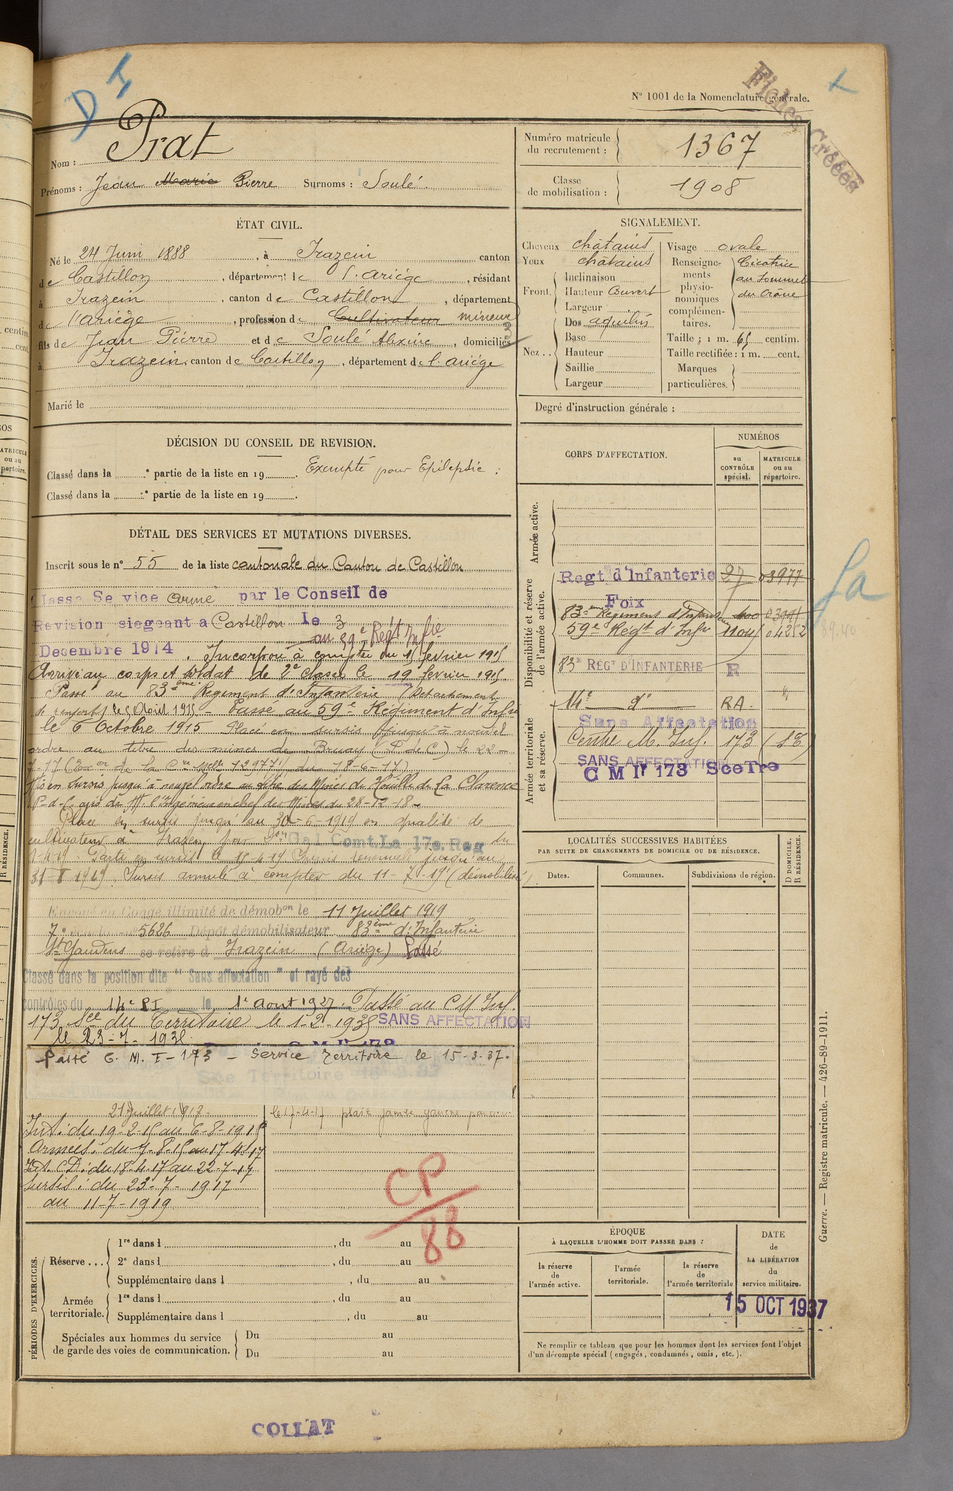 N° 1001 de la Nomenclature générale.
Fiches Créées
Nom : Prat
Prénoms : Jean Marie Pierre Surnoms : Soulé
Numéro matricule du recrutement : 1367
Classe de mobilisation : 1908
ÉTAT CIVIL.
Né le 24 Juin 1888, à Irazein canton
de Castillon, département de l'Ariège, résidant
à Irazein, canton de Castillon, département
de l'Ariège, profession de Cultivateur mineur
fils de Jean Pierre et de Soulé Alexine, domiciliés
à Irazein, canton de Castillon, département de l'Ariège
Marié le
SIGNALEMENT.
Cheveux châtains
Yeux châtains
Front. Inclinaison
Hauteur Couvert
Largeur
Nez... Dos aquilin
Base
Hauteur
Saillie
Largeur
Visage ovale
Renseignements physionomiques complémentaires. Cicatrice au sommet du crâne
Taille : 1 m. 65 centim.
Taille rectifiée : 1 m. cent.
Marques particulières.
Degré d'instruction générale :
DÉCISION DU CONSEIL DE REVISION.
Classé dans la e partie de la liste en 19 . Exempté pour Epilepsie.
Classé dans la e partie de la liste en 19 .
DÉTAIL DES SERVICES ET MUTATIONS DIVERSES.
Inscrit sous le n° 55 de la liste cantonale du Canton de Castillon
Classé Service armé par le Conseil de
Revision siegeant a Castillon le 3
Decembre 1914. au 59e Regt Infie
Incorporé à compter du 19 février 1915
Arrivé au corps et soldat de 2e classe le 19 février 1915.
Passé au 83ème Régiment d'Infanterie (Détachement
de renfort) le 5 Août 1915. Passé au 59e Régiment d'Infie
le 6 Octobre 1915. Placé en sursis jusqu'à nouvel
ordre au titre des mines de Bruay (P. de C) le 22-
7-17
Mis en sursis jusqu'à nouvel ordre au titre des Mines de Houille de La Clarence
P-d-C avis de M. l'Ingénieur en chef des Mines du 28-12-18
Placé en sursis jusqu'au 30-6-1919 en qualité de
cultivateur à Irazein
Gal Comt La 17e Reg
31-8-1919. Sursis annulé à compter du 11-7-19 (démobilisé)
Envoyé en Congé illimité de démobon le 11 Juillet 1919
7e 5626 Dépôt démobilisateur 83ème d'Infanterie
St Gaudens se retire à Irazein (Ariège) Passé
Classé dans la position dite " Sans affectation " et rayé des
contrôles du 14e RI le 1e Aout 1927. Passé au CM Inf.
173 Sce du Territoire le 1-2-1935 SANS AFFECTATION
le 23-7-1936
Passé C. M. I-173 - Service Territoire le 15-3-37.
21 Juillet 1917.
Int. : du 19-2-15 au 6-8-1915
Armées : du 7-8-15 au 17-4-17
Int. CD. : du 18-4-17 au 22-7-17
Sursis : du 23-7-1917
au 11-7-1919
CP
88
CORPS D'AFFECTATION.
NUMÉROS
au CONTRÔLE spécial.
MATRICULE ou au répertoire.
Armée active.
Disponibilité et réserve de l'armée active.
Regt d'Infanterie
Foix
83ème Régiment d'Infanterie
59e Régt d'Infie
83e REGt D'INFANTERIE R
14e do RA.
Armée territoriale et sa réserve.
Sans Affectation
Centre M. Inf. 173 (SE)
SANS AFFECTATION
C M It 173 Sce Tre
LOCALITÉS SUCCESSIVES HABITÉES
PAR SUITE DE CHANGEMENTS DE DOMICILE OU DE RÉSIDENCE.
Dates.
Communes.
Subdivisions de région.
D DOMICILE.
R RÉSIDENCE.
PÉRIODES D'EXERCICES.
Réserve... 1re dans l , du au
2e dans l , du au
Supplémentaire dans l , du au
Armée territoriale. 1re dans l , du au
Supplémentaire dans l , du au
Spéciales aux hommes du service de garde des voies de communication. Du au
Du au
ÉPOQUE
À LAQUELLE L'HOMME DOIT PASSER DANS :
la réserve de l'armée active.
l'armée territoriale.
la réserve de l'armée territoriale
DATE de LA LIBÉRATION du service militaire.
15 OCT 1937
Ne remplir ce tableau que pour les hommes dont les services font l'objet
d'un décompte spécial (engagés, condamnés, omis, etc.).
Guerre. — Registre matricule. — 426-89-1911.
COLLAT